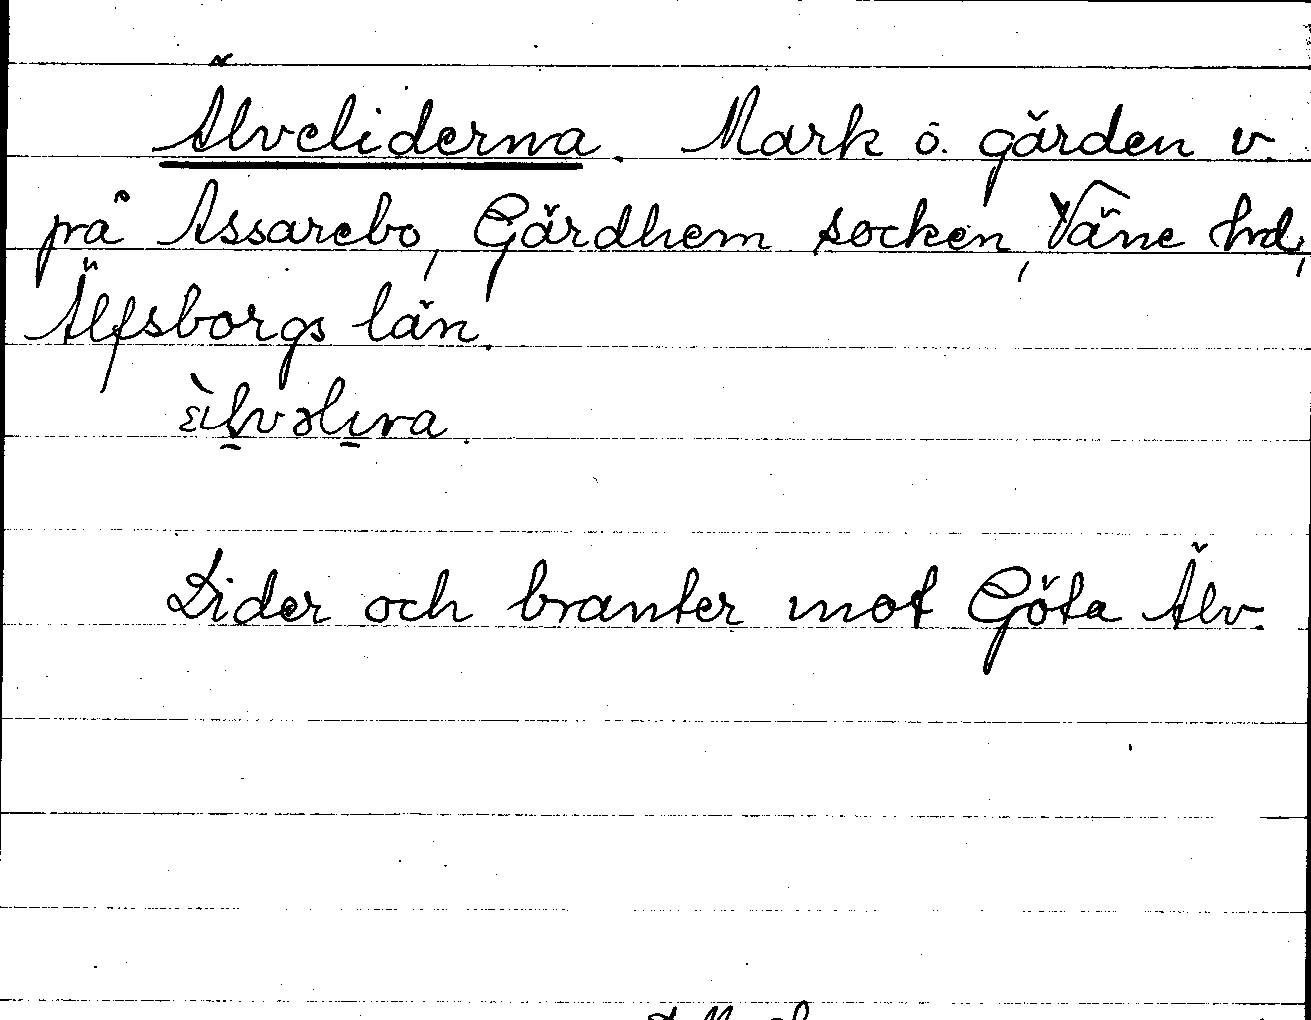 Älveliderna. Mark o. gärden v.
på Assarebo, Gärdhem socken, Väne hd,
Älfsborgs län.
Lider och branter mot Göta Älv.